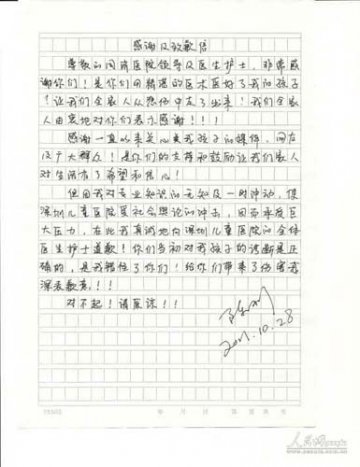 感谢及致歉信
尊敬的同济医院领导及医生护士，非常感
谢你们！是你们用精湛的医术医好了我的孩子
！让我们全家人从悲伤中走了出来！我们全家
人由衷地对你们表示感谢！！！
感谢一直以来关心我孩子的媒体，网友
及广大群众！是你们的支持和鼓励让我们家人
对生活有了希望和信心！
但因我对专业知识的无知及一时冲动，使
深圳儿童医院受社会舆论的冲击，因而承受巨
大压力，在此我真诚地向深圳儿童医院的全体
医生护士道歉！你们当初对我孩子的诊断是正
确的，是我错怪了你们！给你们带来了伤害我
深表歉意！！！
对不起！请原谅！！
2011.10.28
年 月 日 第 页 共 页
人民网
www.people.com.cn